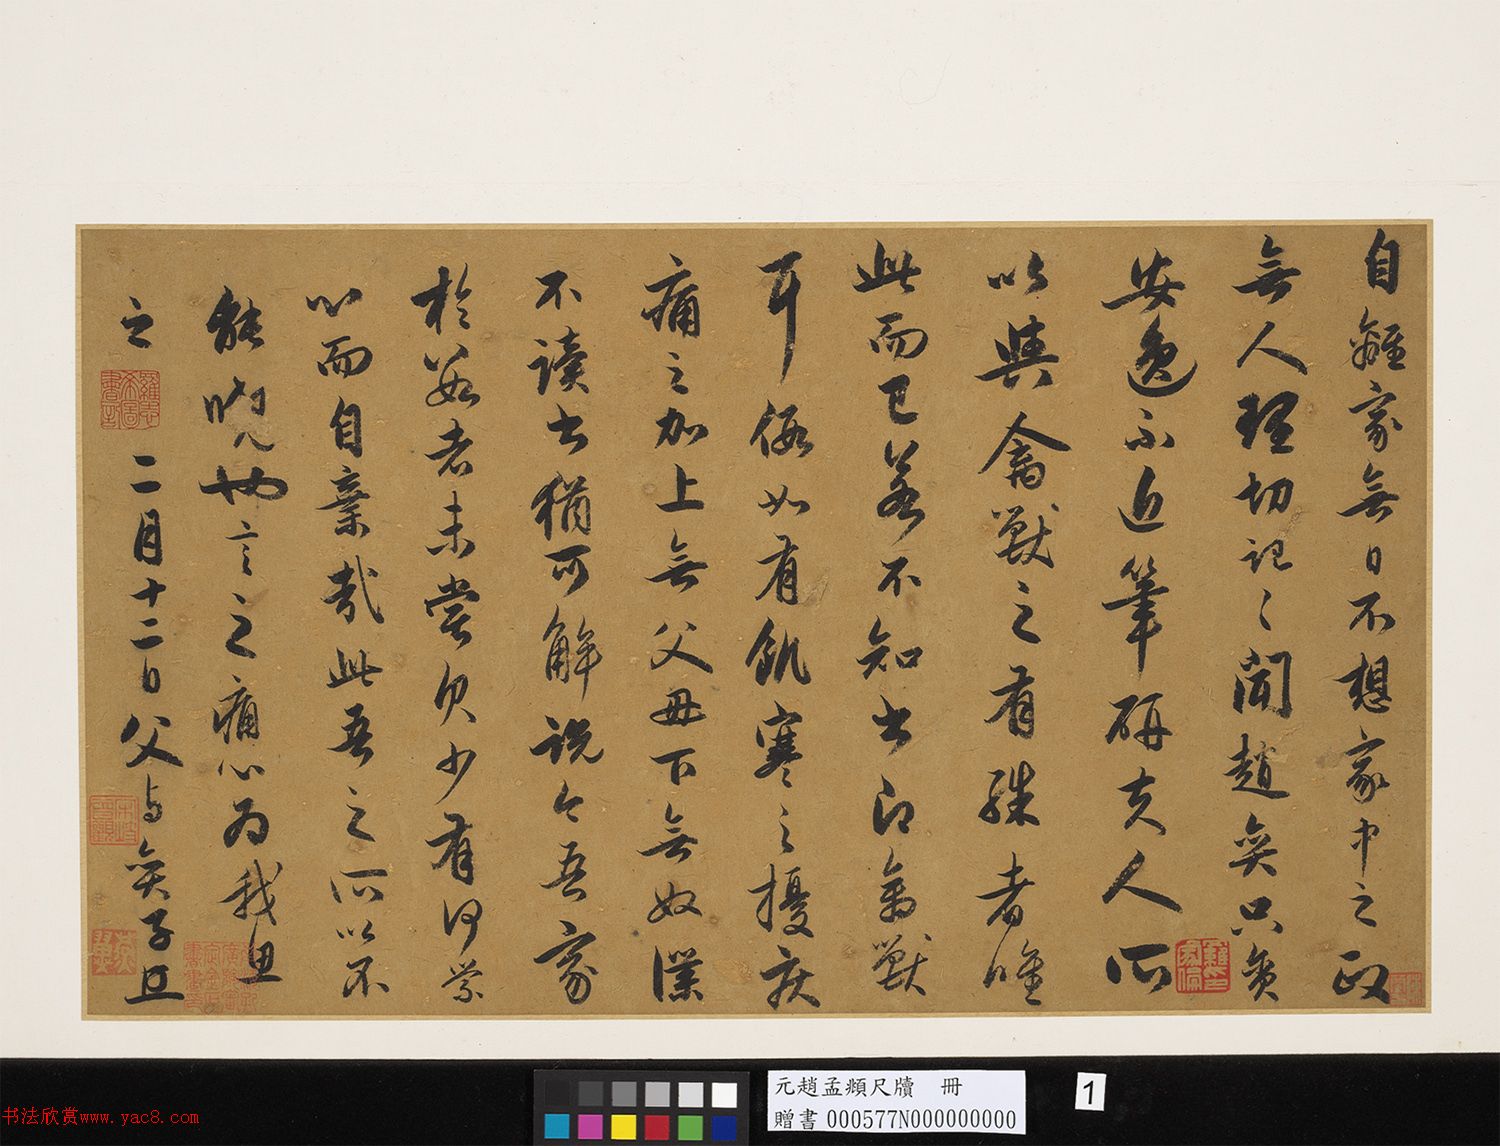 自離家無日不想家中之政
無人理切記〻聞趙奕只貪
安逸不近筆研夫人所
以與禽獸之有殊者唯
此而已若不知書即禽獸
耳假如有飢寒之擾疾
痛之加上無父母下無奴僕
不讀書猶可解說今吾家
於數者未嘗欠少有何縈
心而自棄哉此吾之所以不
能曉也言之痛心為我思
之 二月十二日父与奕子且
元趙孟頫尺牘 冊
贈書 000577N000000000
1
书法欣赏www.yac8.com